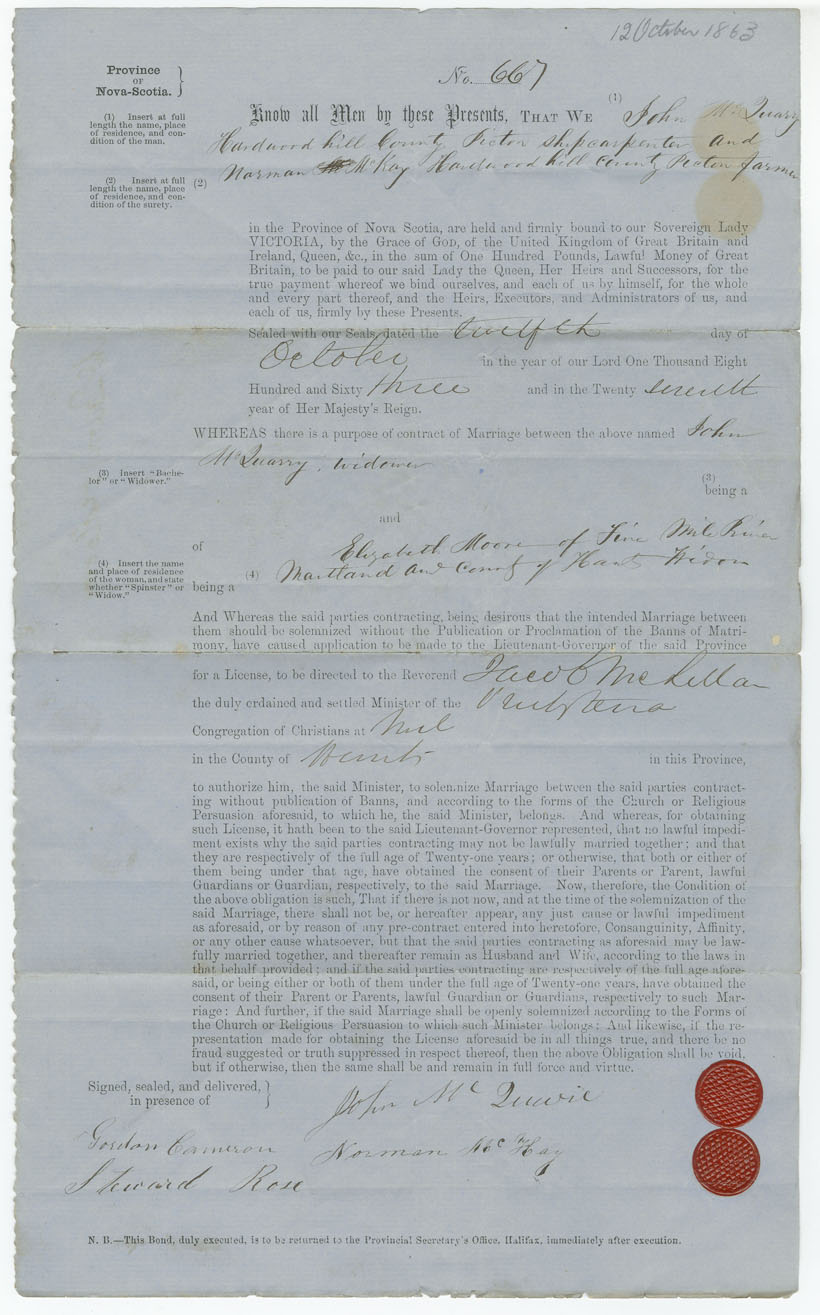 12 October 1863
Province
OF
Nova-Scotia. }
No. 667
(1) Insert at full
length the name, place
of residence, and con-
dition of the man.
Know all Men by these Presents, THAT WE (1) John McQuarry
Hardwood hill County Picton shipcarpenter and
(2) Insert at full
length the name, place
of residence, and con-
dition of the surety.
(2) Norman McKay Hardwood hill County Picton farmer
in the Province of Nova Scotia, are held and firmly bound to our Sovereign Lady
VICTORIA, by the Grace of GOD, of the United Kingdom of Great Britain and
Ireland, Queen, &c., in the sum of One Hundred Pounds, Lawful Money of Great
Britain, to be paid to our said Lady the Queen, Her Heirs and Successors, for the
true payment whereof we bind ourselves, and each of us by himself, for the whole
and every part thereof, and the Heirs, Executors, and Administrators of us, and
each of us, firmly by these Presents.
Sealed with our Seals, dated the twelfth day of
October in the year of our Lord One Thousand Eight
Hundred and Sixty three and in the Twenty seventh
year of Her Majesty's Reign.
WHEREAS there is a purpose of contract of Marriage between the above named John
McQuarry, widower
(3) Insert "Bache-
lor" or "Widower."
(3)
being a
and
of Elizabeth Moore of Five Mile River
(4) Insert the name
and place of residence
of the woman, and state
whether "Spinster" or
"Widow."
(4) Maitland and County of Hants Widow
being a
And Whereas the said parties contracting, being desirous that the intended Marriage between
them should be solemnized without the Publication or Proclamation of the Banns of Matri-
mony, have caused application to be made to the Lieutenant-Governor of the said Province
for a License, to be directed to the Reverend Jacob McLellan
the duly ordained and settled Minister of the
Congregation of Christians at
in the County of Hants in this Province,
to authorize him, the said Minister, to solemnize Marriage between the said parties contract-
ing without publication of Banns, and according to the forms of the Church or Religious
Persuasion aforesaid, to which he, the said Minister, belongs. And whereas, for obtaining
such License, it hath been to the said Lieutenant-Governor represented, that no lawful impedi-
ment exists why the said parties contracting may not be lawfully married together; and that
they are respectively of the full age of Twenty-one years; or otherwise, that both or either of
them being under that age, have obtained the consent of their Parents or Parent, lawful
Guardians or Guardian, respectively, to the said Marriage. Now, therefore, the Condition of
the above obligation is such, That if there is not now, and at the time of the solemnization of the
said Marriage, there shall not be, or hereafter appear, any just cause or lawful impediment
as aforesaid, or by reason of any pre-contract entered into heretofore, Consanguinity, Affinity,
or any other cause whatsoever, but that the said parties contracting as aforesaid may be law-
fully married together, and thereafter remain as Husband and Wife, according to the laws in
that behalf provided; and if the said parties contracting are respectively of the full age afore-
said, or being either or both of them under the full age of Twenty-one years, have obtained the
consent of their Parent or Parents, lawful Guardian or Guardians, respectively to such Mar-
riage: And further, if the said Marriage shall be openly solemnized according to the Forms of
the Church or Religious Persuasion to which such Minister belongs: And likewise, if the re-
presentation made for obtaining the License aforesaid be in all things true, and there be no
fraud suggested or truth suppressed in respect thereof, then the above Obligation shall be void,
but if otherwise, then the same shall be and remain in full force and virtue.
Signed, sealed, and delivered, }
in presence of
John Mc Quarie
Gordon Cameron
Norman Mc Kay
Steward Rose
N. B.—This Bond, duly executed, is to be returned to the Provincial Secretary's Office, Halifax, immediately after execution.